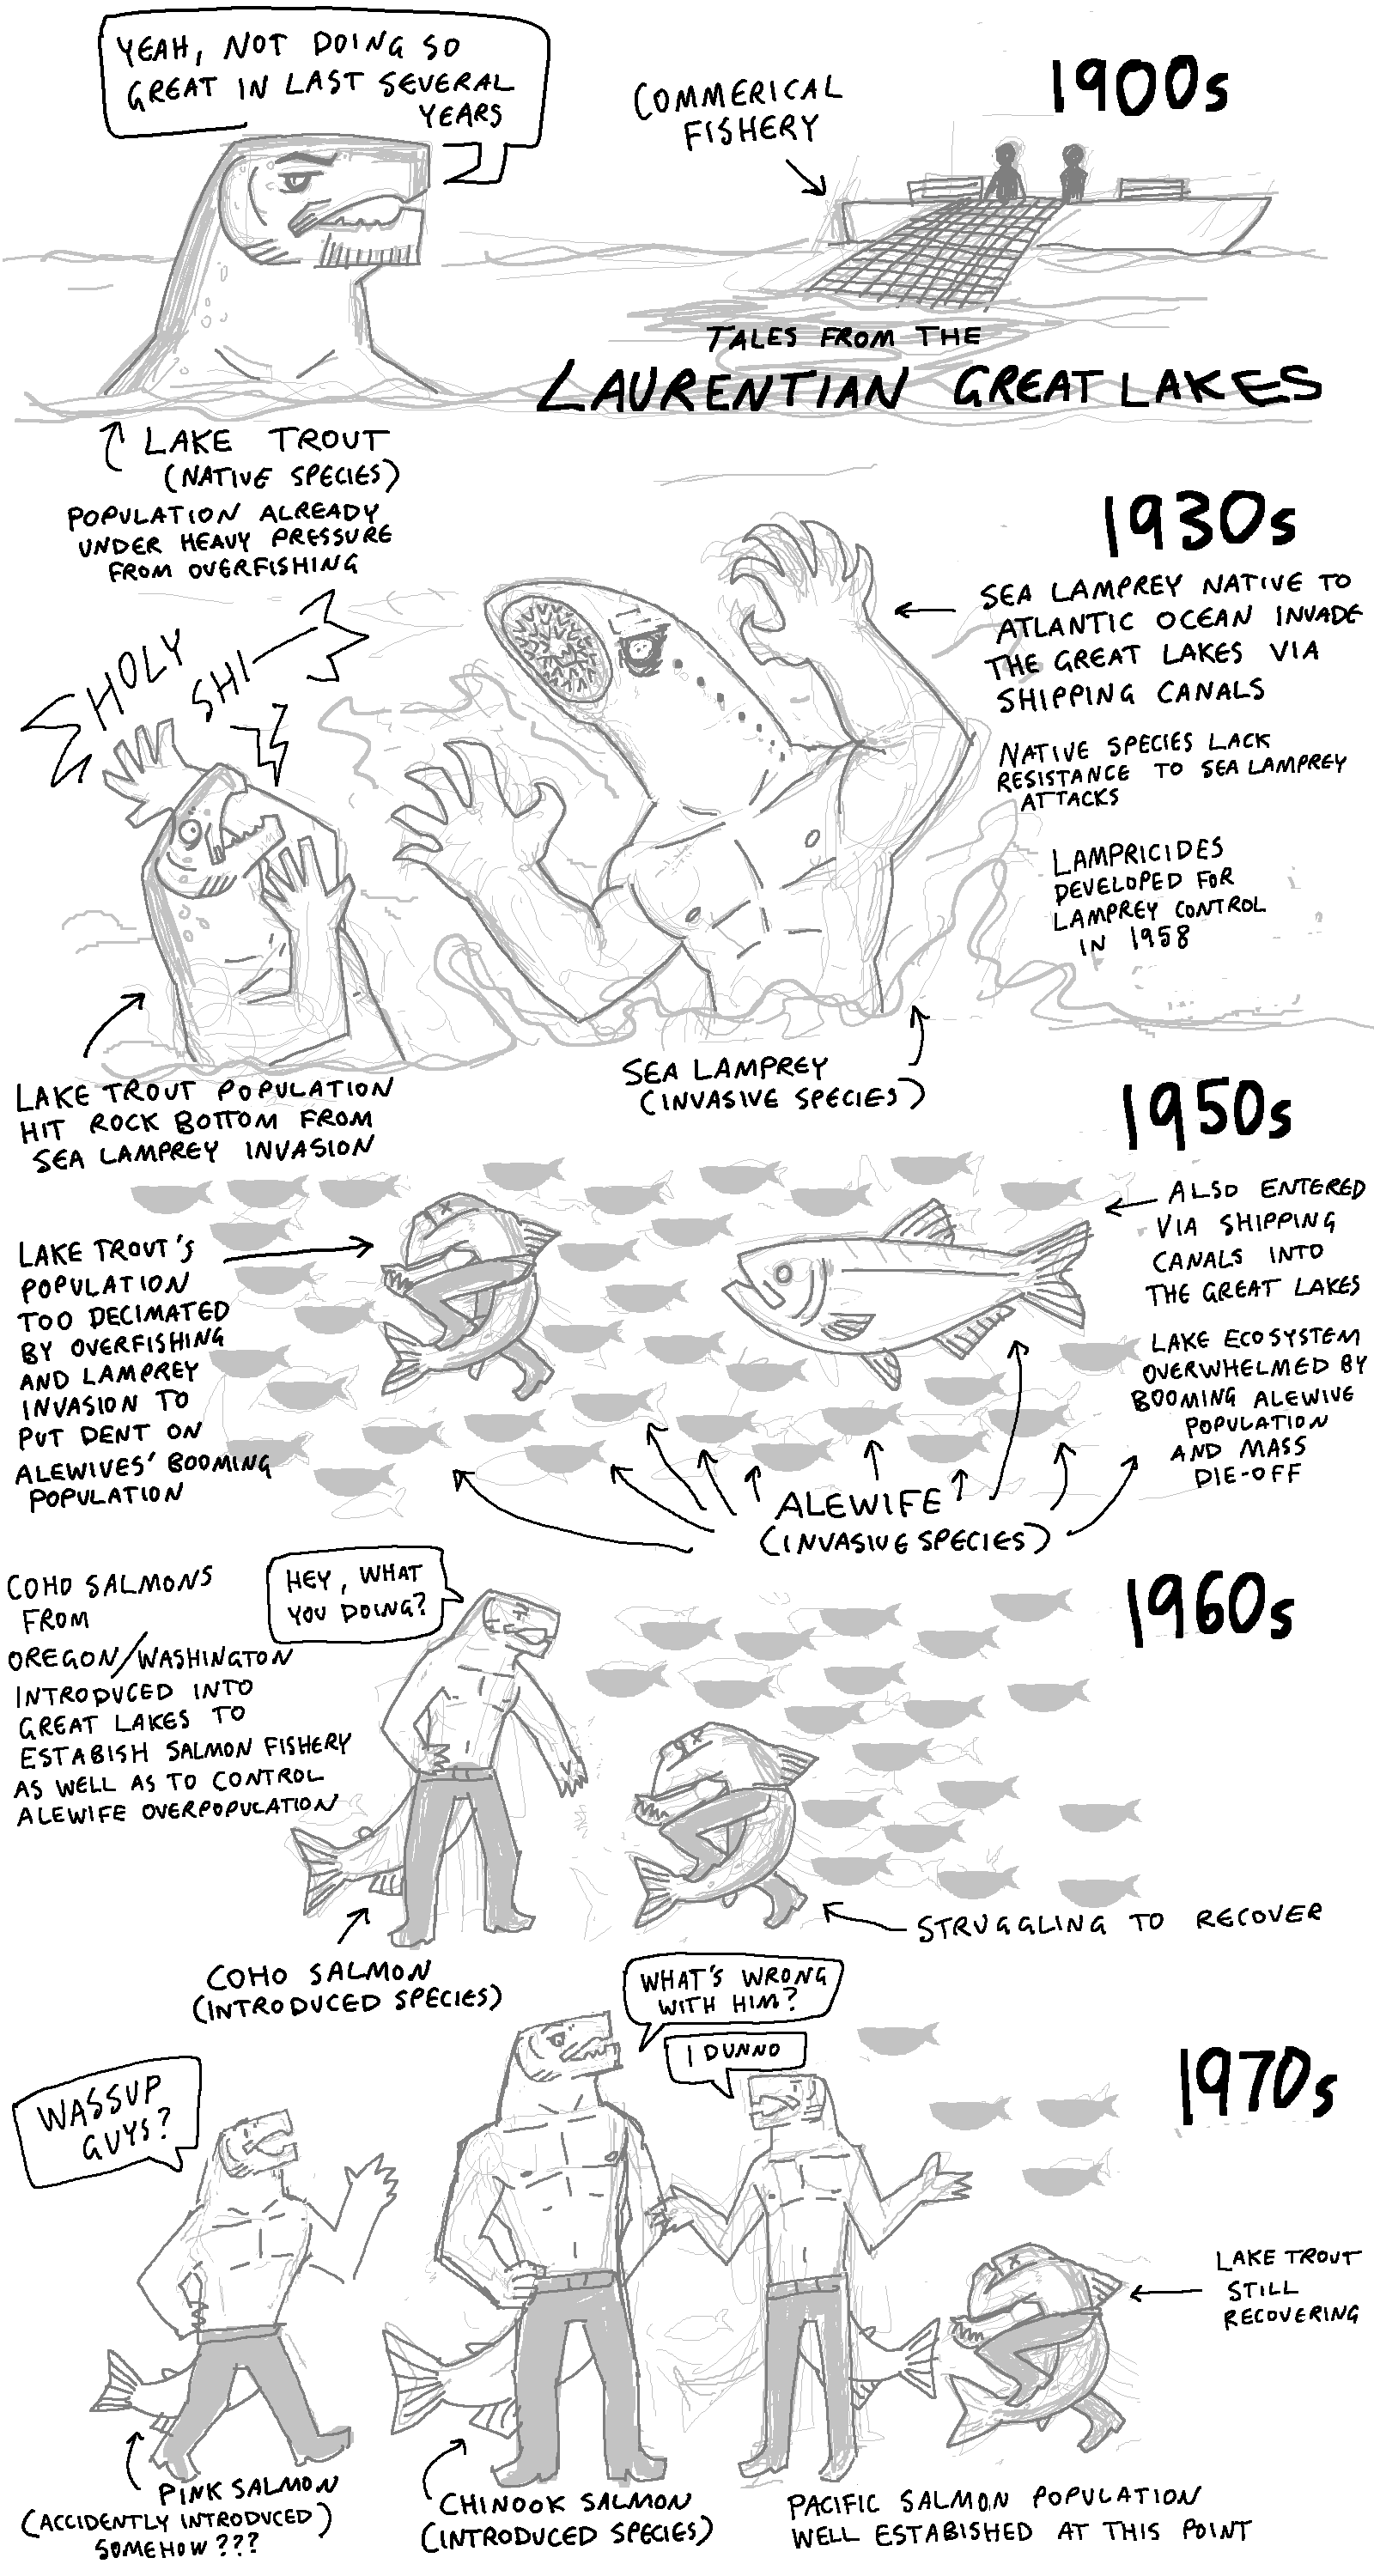 YEAH, NOT DOING SO
GREAT IN LAST SEVERAL
YEARS
COMMERICAL
FISHERY
1900s
TALES FROM THE
LAURENTIAN GREAT LAKES
LAKE TROUT
(NATIVE SPECIES)
POPULATION ALREADY
UNDER HEAVY PRESSURE
FROM OVERFISHING
1930s
HOLY
SHI—
SEA LAMPREY NATIVE TO
ATLANTIC OCEAN INVADE
THE GREAT LAKES VIA
SHIPPING CANALS
NATIVE SPECIES LACK
RESISTANCE TO SEA LAMPREY
ATTACKS
LAMPRICIDES
DEVELOPED FOR
LAMPREY CONTROL
IN 1958
SEA LAMPREY
(INVASIVE SPECIES)
LAKE TROUT POPULATION
HIT ROCK BOTTOM FROM
SEA LAMPREY INVASION
1950s
LAKE TROUT'S
POPULATION
TOO DECIMATED
BY OVERFISHING
AND LAMPREY
INVASION TO
PUT DENT ON
ALEWIVES' BOOMING
POPULATION
ALSO ENTERED
VIA SHIPPING
CANALS INTO
THE GREAT LAKES
LAKE ECOSYSTEM
OVERWHELMED BY
BOOMING ALEWIVE
POPULATION
AND MASS
DIE-OFF
ALEWIFE
(INVASIVE SPECIES)
1960s
COHO SALMONS
FROM
OREGON/WASHINGTON
INTRODUCED INTO
GREAT LAKES TO
ESTABISH SALMON FISHERY
AS WELL AS TO CONTROL
ALEWIFE OVERPOPULATION
HEY, WHAT
YOU DOING?
COHO SALMON
(INTRODUCED SPECIES)
STRUGGLING TO RECOVER
1970s
WHAT'S WRONG
WITH HIM?
I DUNNO
WASSUP
GUYS?
LAKE TROUT
STILL
RECOVERING
PINK SALMON
(ACCIDENTLY INTRODUCED)
SOMEHOW???
CHINOOK SALMON
(INTRODUCED SPECIES)
PACIFIC SALMON POPULATION
WELL ESTABISHED AT THIS POINT